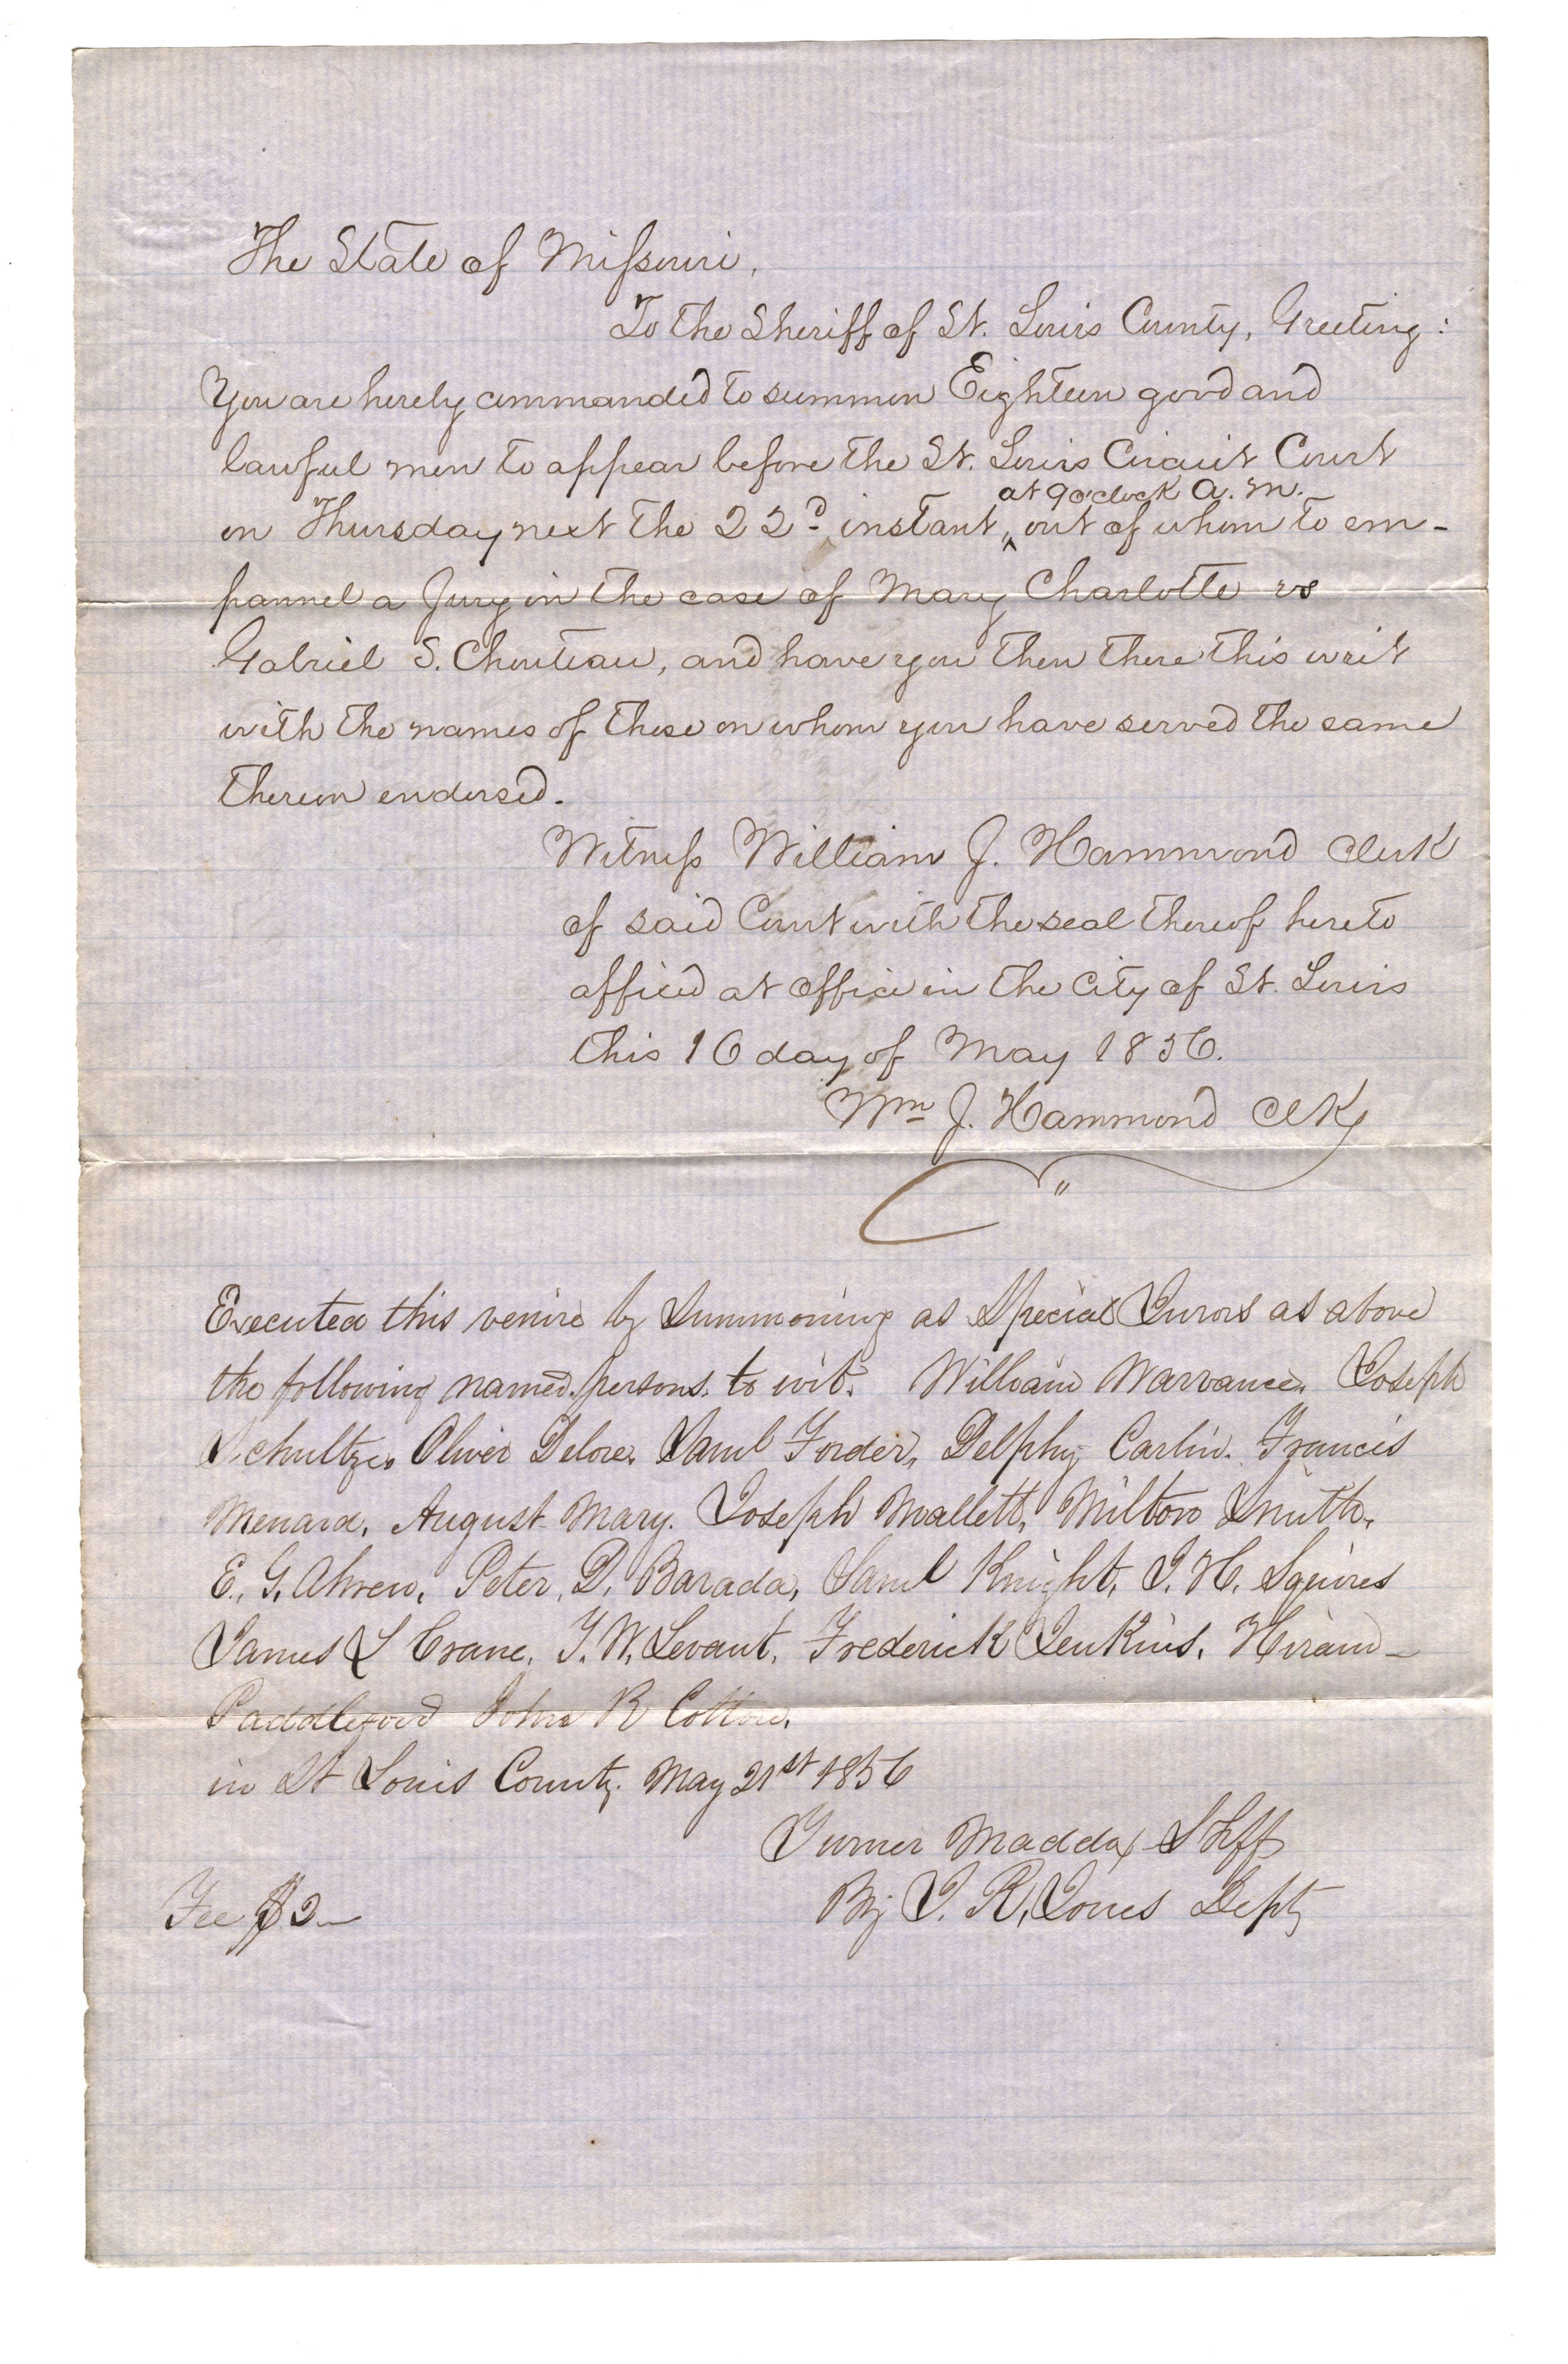 The State of Missouri,
To the Sheriff of St. Louis County, Greeting:
You are hereby commanded to summon Eighteen good and
lawful men to appear before the St. Louis Circuit Court
at 9 o'clock A.M.
on Thursday next the 22d instant, out of whom to em-
pannel a Jury in the case of Mary Charlotte vs
Gabriel S. Chouteau, and have you then there this writ
with the names of those on whom you have served the same
thereon endorsed.
Witness William J. Hammond Clerk
of said Court with the seal thereof hereto
affixed at office in the City of St. Louis
this 16 day of May 1856.
Wm J. Hammond Clk
Executed this venire by Summoning as Special Jurors as above
the following named persons. to wit. William Warrance, Joseph
Schultze, Oliver Delore, Saml Forder, Delphy Carlin. Francis
Menard, August Mary. Joseph Mallett, Milton Smith,
E. G. Ahren, Peter, D. Barada, Saml Knight, J. H. Squires
James L Crane, T. W. Levant, Frederick Jenkins, Hiram
Paddleford John R Cotton.
in St Louis County. May 21st 1856
Turner Maddox Shff
By J. R. Jones Depty
Fee $2—